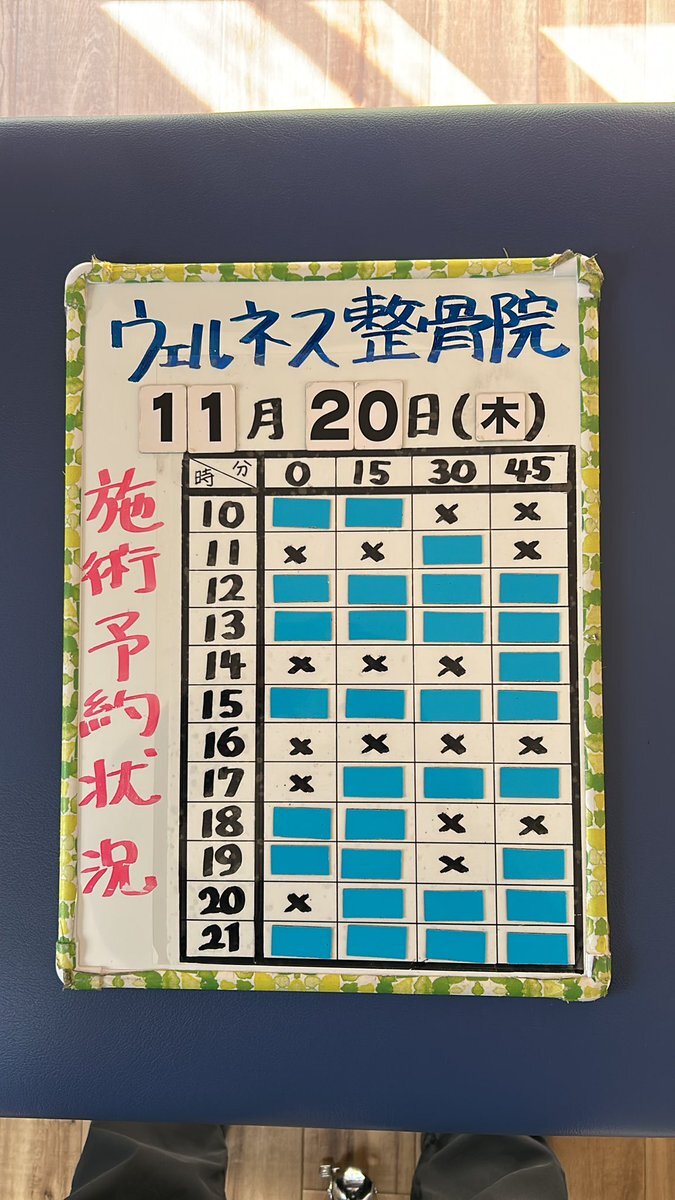 ウェルネス整骨院
11月20日(木)
施術予約状況
時 分 0 15 30 45
10 × ×
11 × × ×
12
13
14 × × ×
15
16 × × × ×
17 ×
18 × ×
19 ×
20 ×
21